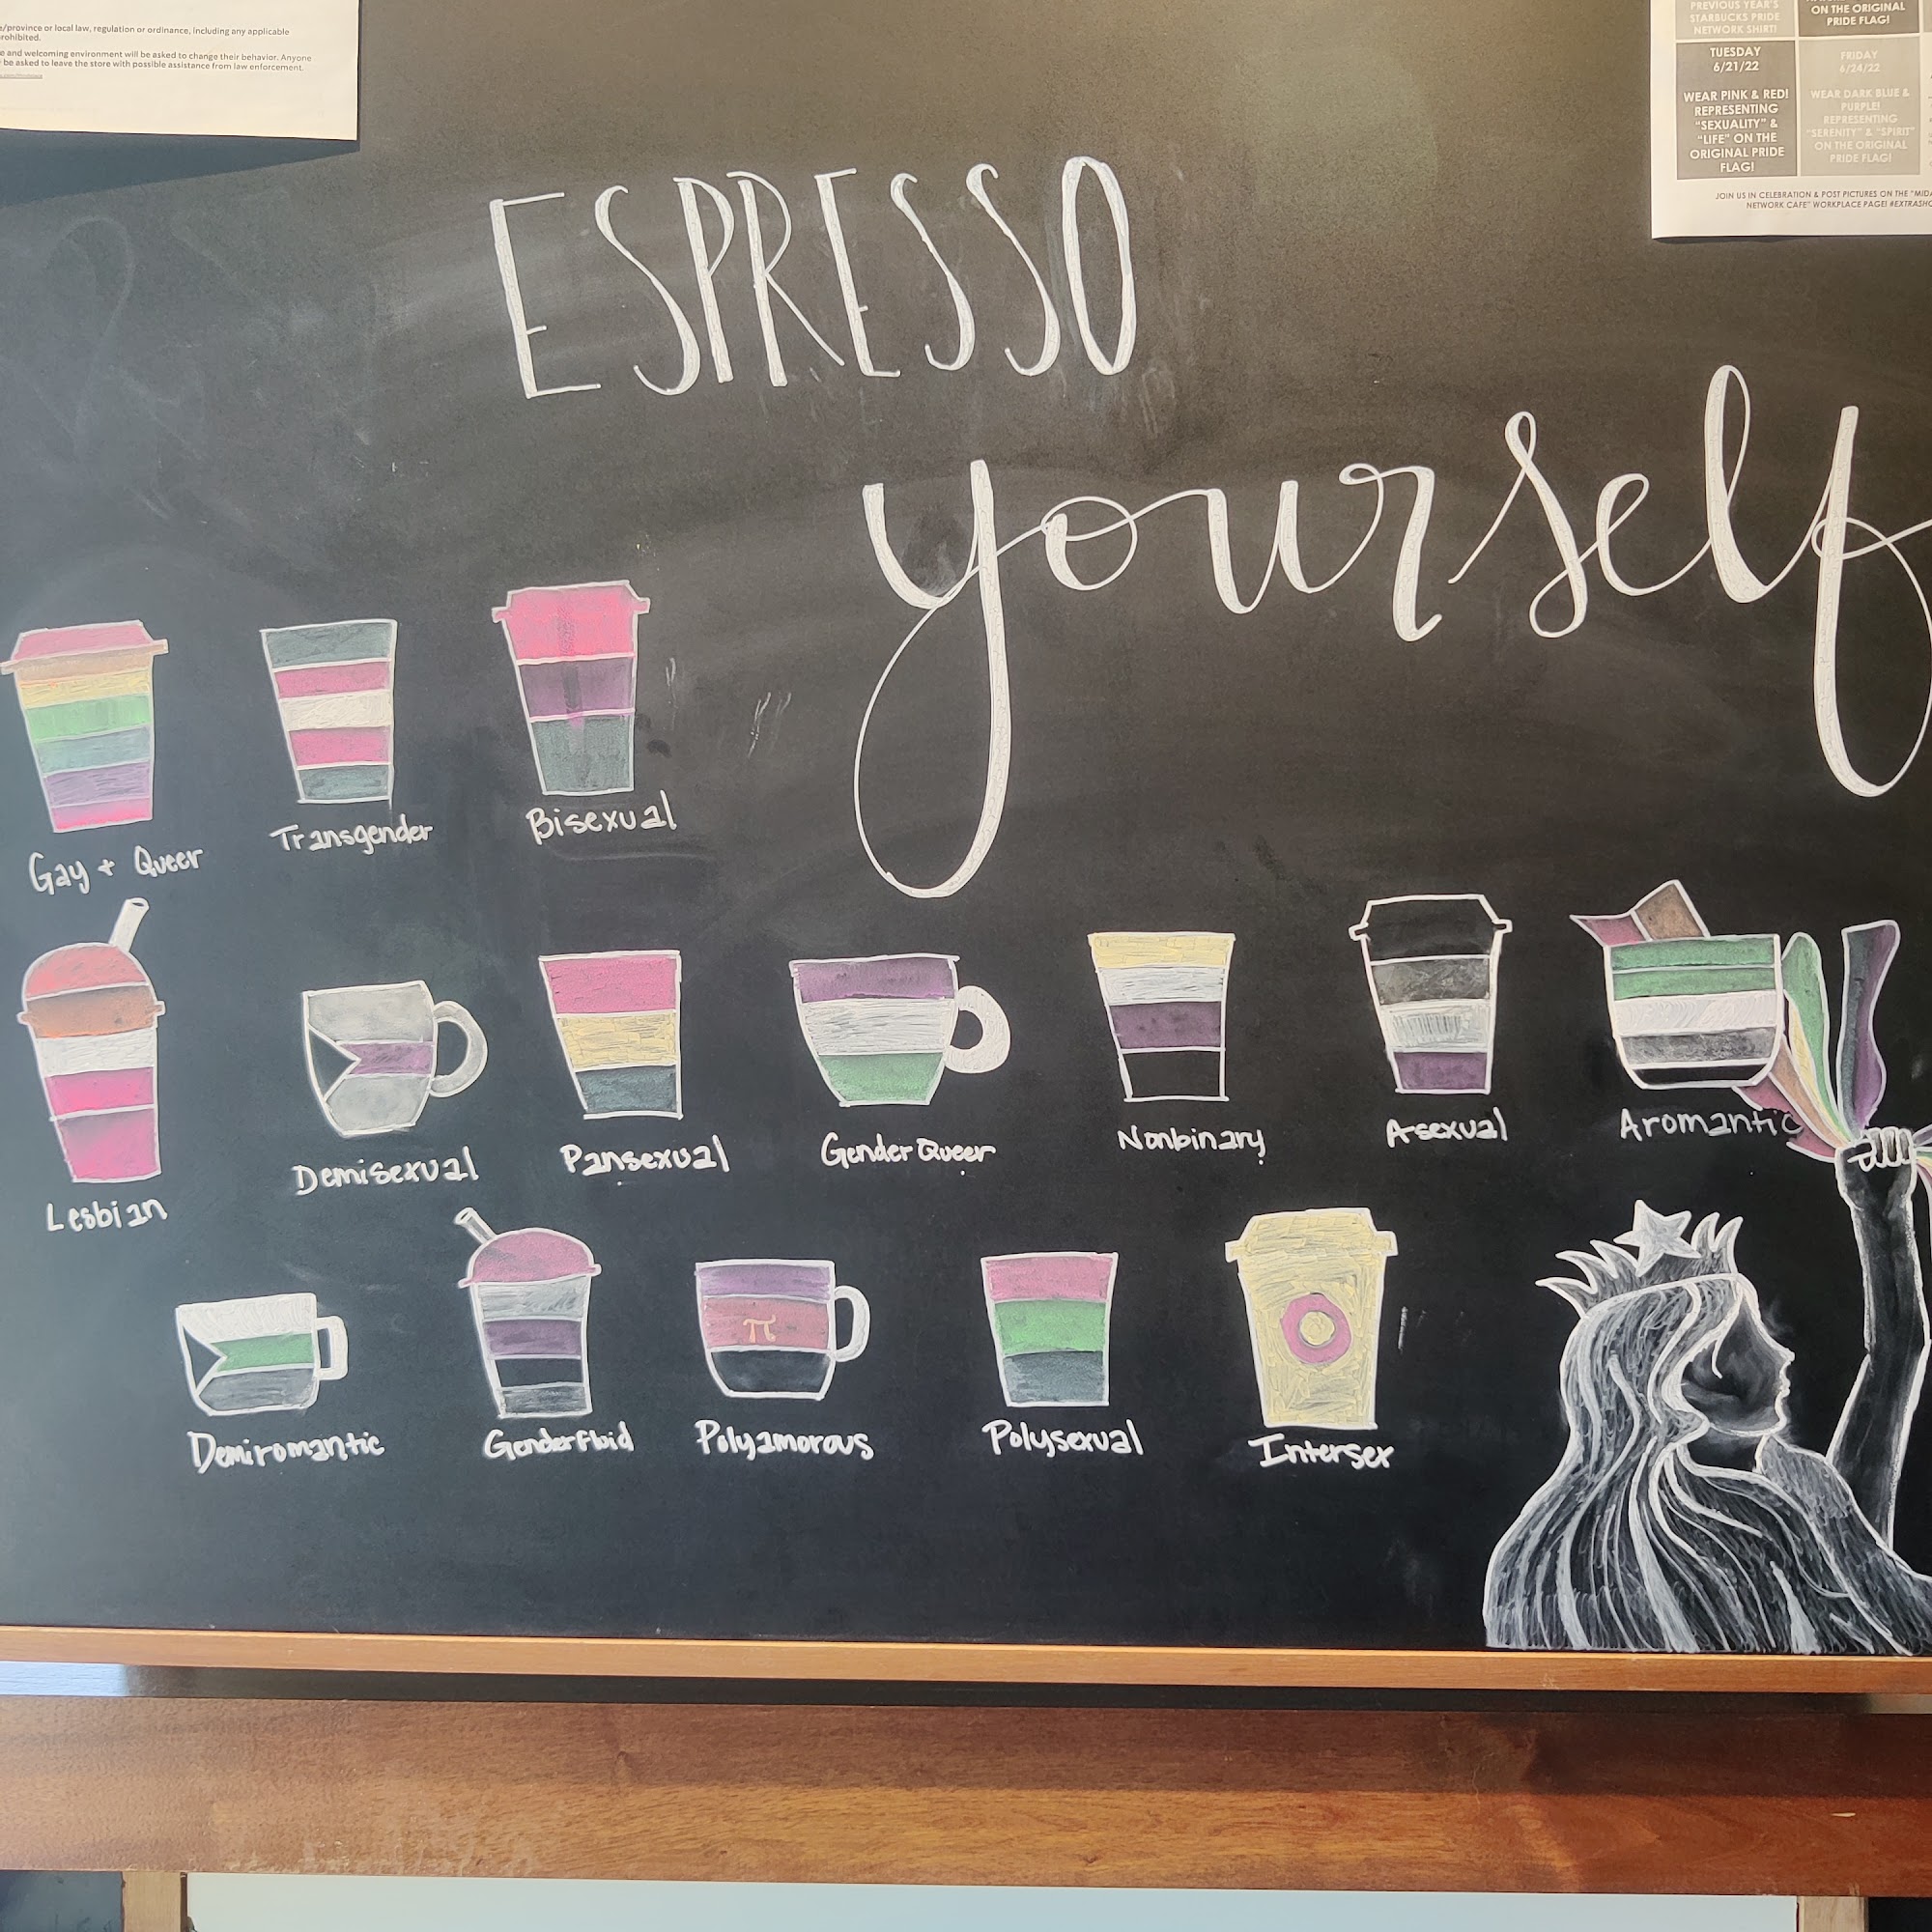 e/province or local law, regulation or ordinance, including any applicable
rohibited.
e and welcoming environment will be asked to change their behavior. Anyone
be asked to leave the store with possible assistance from law enforcement.
PREVIOUS YEAR'S
STARBUCKS PRIDE
NETWORK SHIRT!
ON THE ORIGINAL
PRIDE FLAG!
TUESDAY
6/21/22
WEAR PINK & RED!
REPRESENTING
"SEXUALITY" &
"LIFE" ON THE
ORIGINAL PRIDE
FLAG!
FRIDAY
6/24/22
WEAR DARK BLUE &
PURPLE!
REPRESENTING
"SERENITY" & "SPIRIT"
ON THE ORIGINAL
PRIDE FLAG!
JOIN US IN CELEBRATION & POST PICTURES ON THE "MIDA
NETWORK CAFE" WORKPLACE PAGE! #EXTRASHO
ESPRESSO
yourself
Gay + Queer
Transgender
Bisexual
Lesbian
Demisexual
Pansexual
GenderQueer
Nonbinary
Asexual
Aromantic
Demiromantic
GenderFluid
π
Polyamorous
Polysexual
Intersex